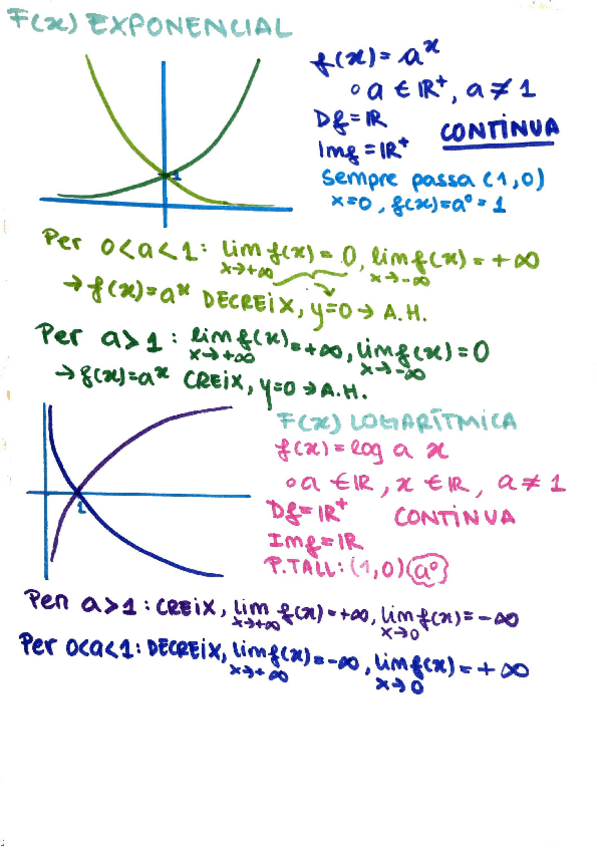 F(x) EXPONENCIAL
f(x) = a^x
∘ a ∈ ℝ⁺, a ≠ 1
Df = ℝ
CONTÍNUA
Imf = ℝ⁺
Sempre passa (1,0)
x=0, f(x)=a⁰=1
1
Per 0<a<1: lim f(x) = 0, lim f(x) = +∞
x→+∞ x→-∞
→ f(x)=a^x DECREIX, y=0 → A.H.
Per a>1: lim f(x) = +∞, lim f(x) = 0
x→+∞ x→-∞
→ f(x)=a^x CREIX, y=0 → A.H.
F(x) LOGARÍTMICA
f(x) = log a x
∘ a ∈ ℝ, x ∈ ℝ, a ≠ 1
1
Df = ℝ⁺ CONTÍNUA
Imf = ℝ
P.TALL: (1,0) a⁰
Per a>1: CREIX, lim f(x) = +∞, lim f(x) = -∞
x→+∞ x→0
Per 0<a<1: DECREIX, lim f(x) = -∞, lim f(x) = +∞
x→+∞ x→0